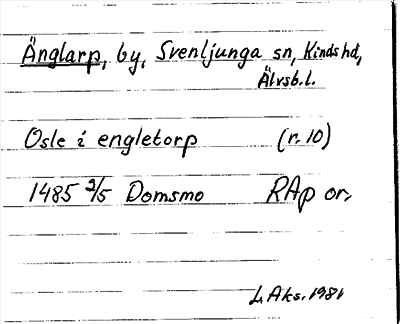 Änglarp, by, Svenljunga sn, Kinds hd,
Älvsb.l.
Osle i engletorp (r. 10)
1485 2/5 Domsmo RAp or.
L. Aks. 1981